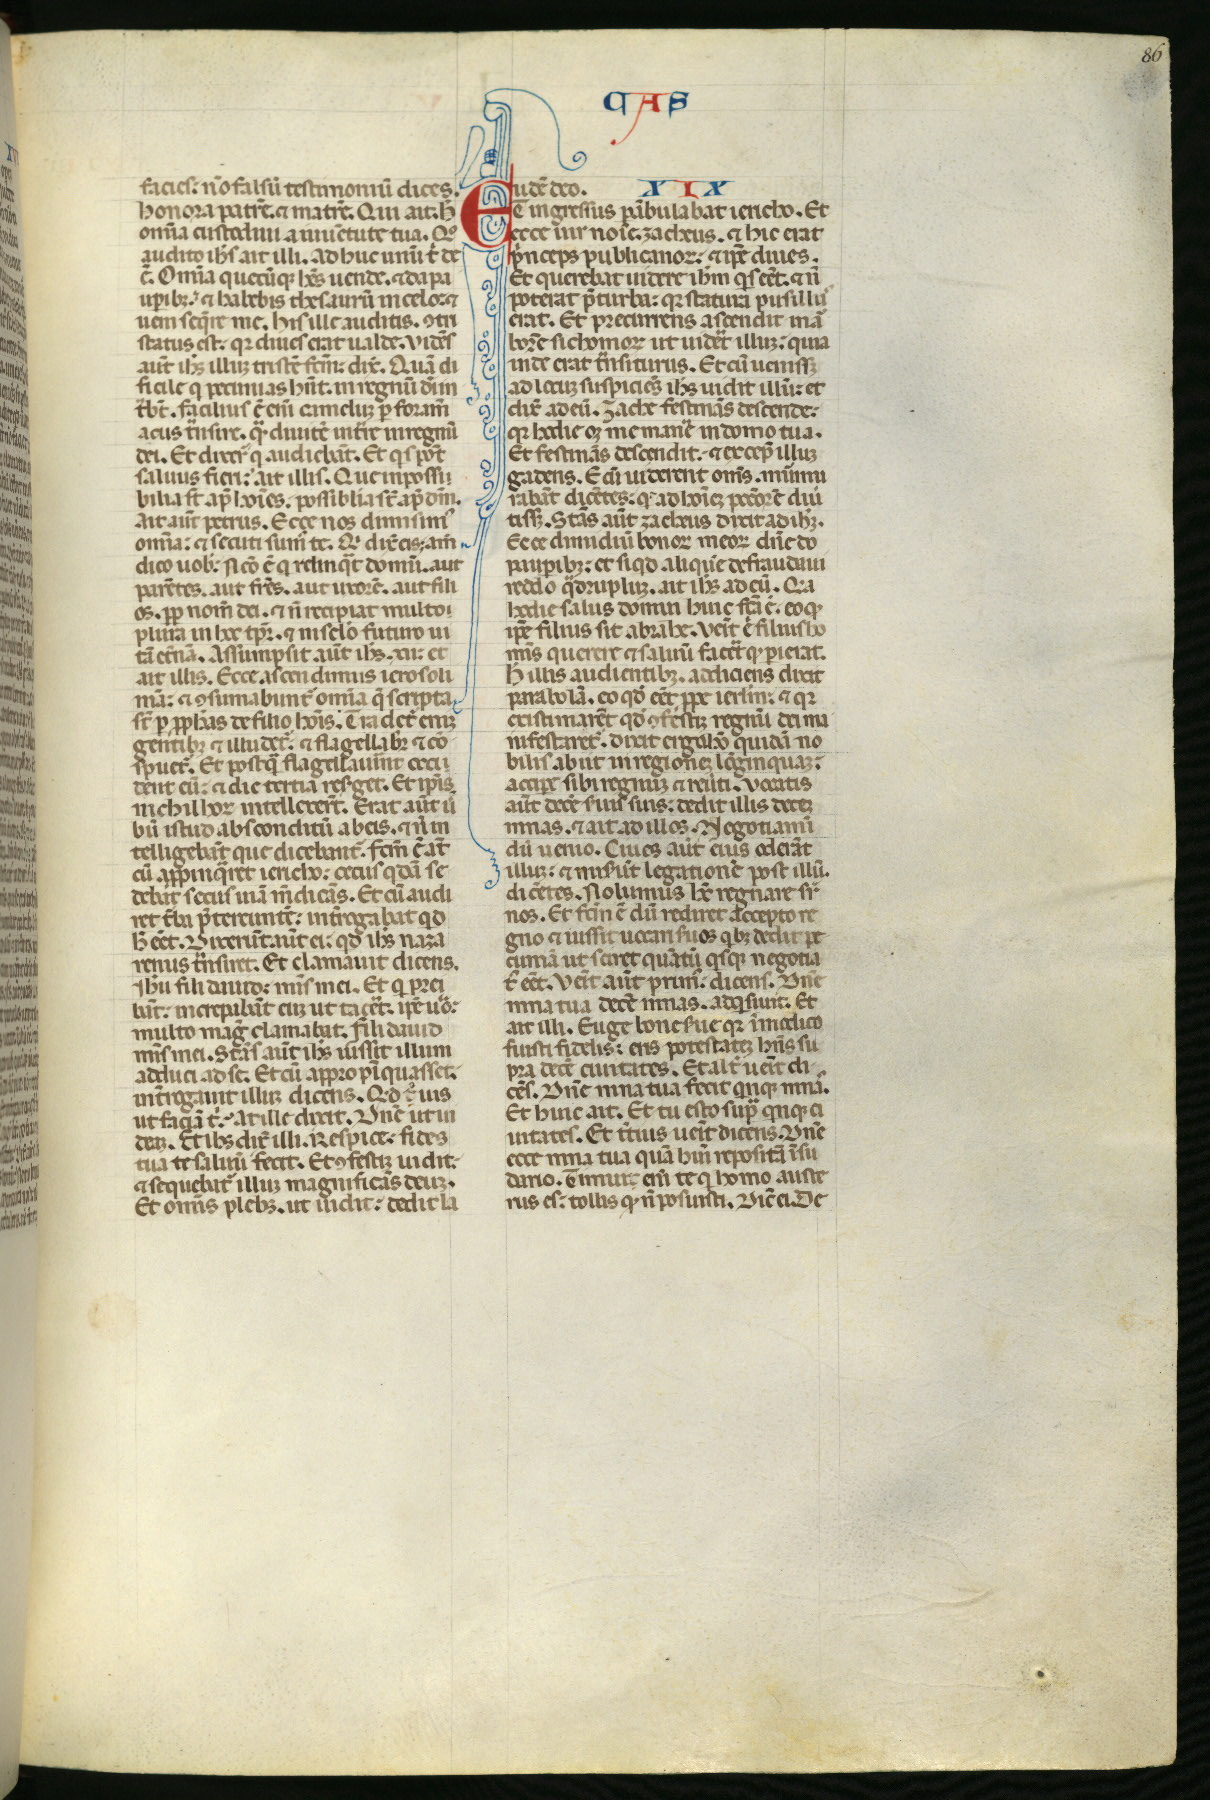 86
CAS
facies: nõ falsũ testimoniũ dices.
honora patrẽ. ⁊ matrẽ. Qui ait: h̃
om̃ia custodiui a iuuẽtute tua. Q°
audito ih̃s ait illi. Adhuc unũ t̃ de
ẽ. Om̃ia quecũq; hẽs uende. ⁊ da pa
upib;: ⁊ habebis thesaurũ in celo: ⁊
ueni seq̃re me. His ille auditis. ↄtri
status est: qr diues erat ualde. Vidẽs
aut̃ ih̃s illũ tristẽ fc̃m: dix̃. Quã di
ficile q pecunias hñt. in regnũ dei in
t̃bt̃. facilius ẽ eni᷈ camelũ p foram̃
acus t̃nsire. q̃ diuitẽ int̃re in regnũ
dei. Et dixer̃ q audiebãt. Et qs põt
saluus fieri: ait illis. Que inpossi
bilia st̃ ap̃ hoĩes: possibilia st̃ ap̃ dm̃.
Ait aut̃ petrus. Ecce nos dimisim᷒
omnia: ⁊ secuti sum᷒ te. Q° dix̃ eis: am̃
dico uob̃: Nẽo ẽ q relinq̃t domũ. aut
parẽtes. aut fr̃es. aut uxorẽ. aut fili
os. pp nom̃ dei. ⁊ ñ recipiat multo
plura in hoc tp̃r. ⁊ in sclo futuro ui
tã et̃nã. Assumpsit aut̃ ih̃s .xii. et
ait illis. Ecce ascendimus ierosoli
mã: ⁊ ↄsumabunt᷒ om̃ia q̃ scripta
st̃ p pph̃as de filio hoĩs. Trader᷒ eni᷈
gentib; ⁊ illudet᷒: ⁊ flagellabr̃ ⁊ cõ
spuet᷒. Et postq̃ flagellauint occi
dent eũ: ⁊ die tertia resr̃get. Et ip̃i
nichil hor intellexert̃. Erat aut̃ ũ
bũ istud absconditũ ab eis. ⁊ ñ in
telligebãt que dicebant᷒. fc̃m ẽ at̃
cũ appinq̃ret iericho: cecus qdã se
debat secus uiã m̃dicãs. Et cũ audi
ret t̃bã p̃tereuntẽ: int̃rogabat qd
h̃ eẽt. Dixerũt aut̃ ei: qd ih̃s naza
renus t̃nsiret. Et clamauit dicens.
Ihũ fili dauid: mis̃e mei. Et q prei
bãt: increpabãt eũ ut tacẽt. ip̃e uº:
multo mag̃ clamabat. fili dauid
mis̃e mei. Stãs aut̃ ih̃s iussit illum
adduci ad se. Et cũ appropĩquasset:
int̃rogauit illũ dicens. Qd t̃ uis
ut faciã t̃: At ille dixit. Dñe ut ui
deã. Et ih̃s dix̃ illi. Respice: fides
tua te saluũ fecit. Et ↄfestĩ uidit:
⁊ sequebat᷒ illũ magnificãs deũ.
Et om̃is plebs. ut uidit: dedit la
udẽ deo. XIX
Et ingressus pãbulabat iericho. Et
ecce uir noĩe zacheus. ⁊ hic erat
p̃nceps publicanor: ⁊ ip̃e diues.
Et querebat uidere ih̃m qs eẽt: ⁊ ñ
poterat p̃ turba: qr statura pusillus
erat. Et precurrens ascendit in ar
borẽ sichomor ut uidẽt illũ: quia
inde erat t̃nsiturus. Et cũ uenisset
ad locũ suspiciẽs ih̃s uidit illũ: et
dix̃ ad eũ. Zache festinãs descende:
qr hodie oʒ me manẽ in domo tua.
Et festinãs descendit. ⁊ excep̃ illũ
gadens. Et cũ uiderent om̃s. murmu
rabãt dicẽtes: qd ad hoĩeʒ pctõrẽ diũ
tisset. Stãs aut̃ zacheus dixit ad ihm̃.
Ecce dimidiũ bonor meor dñe do
pauperib;: et siqd aliquẽ defraudaui
reddo q̃druplũ. ait ih̃s ad eũ. Quia
hodie salus domui huic fc̃a ẽ. eo q
ip̃e filius sit abrahe. Venit ẽ filius ho
minis querere ⁊ saluũ facẽ q pierat.
H̃ illis audientib;. addiciens dixit
parabolã. eo qd eẽt ppe ierlm̃: ⁊ qr
existimarẽt qd ↄfestĩ regnũ dei ma
nifestaret᷒. dixit ergo. hõ quidã no
bilis abiit in regionẽ lõginquã:
accipe sibi regnũ ⁊ reũti. Vocatis
aut̃ decẽ suis suis: dedit illis decẽ
mnas. ⁊ ait ad illos. Negotiamĩ
dũ uenio. Ciues aut̃ eius oderãt
illũ: ⁊ miserũt legationẽ post illũ.
dicẽtes. Nolumus hũc regnare sr̃
nos. Et fc̃m ẽ dũ rediret accepto re
gno ⁊ iussit uocari suos qb; dedit pe
cuniã ut sciret quãtũ qsq; negotia
t᷒ eẽt. Venit aut̃ prim᷒. dicens. Dñe
mna tua decẽ mnas. adqsiuit. Et
ait illi. Euge bone sue qr ĩ modico
fuisti fidelis: eris potestatẽ hñs su
pra decẽ ciuitates. Et alt̃ ueit di
cẽs. Dñe mna tua fecit qnq; mnã.
Et huic ait. Et tu esto sup̃ qnq; ci
uitates. Et t̃tius ueit dicens. Dñe
ecce mna tua quã hui repositã ĩ su
dario. Timui eni᷈ te q homo auste
rus es: tollis q ñ posuisti. Dic̃ ei. De